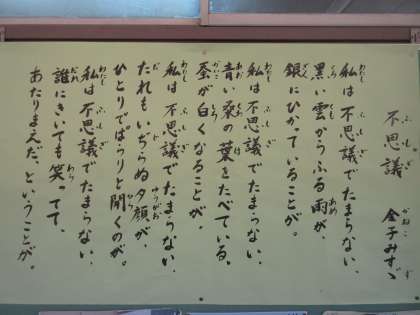 不思議
金子みすゞ
私は不思議でたまらない、
黒い雲からふる雨が、
銀にひかっていることが。
私は不思議でたまらない、
青い桑の葉をたべている、
蚕が白くなることが。
私は不思議でたまらない、
たれもいじらぬ夕顔が、
ひとりでぱらりと開くのが。
私は不思議でたまらない、
誰にきいても笑ってて、
あたりまえだ、ということが。